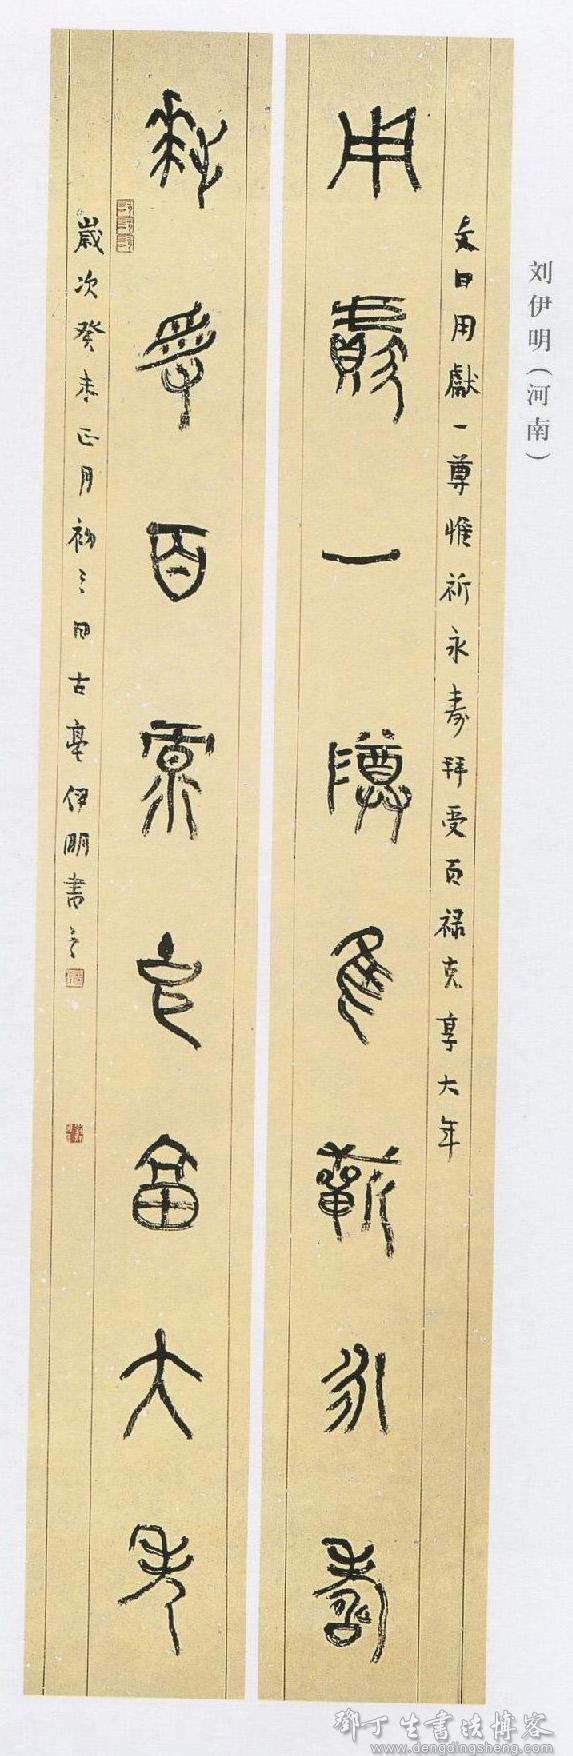 刘伊明（河南）
文曰用獻一尊惟祈永寿拜受百禄克享大年
用獻一尊惟祈永壽
拜受百祿克享大年
歲次癸未正月初三日古亳伊明書之
鄧丁生書法博客
www.dengdingsheng.com